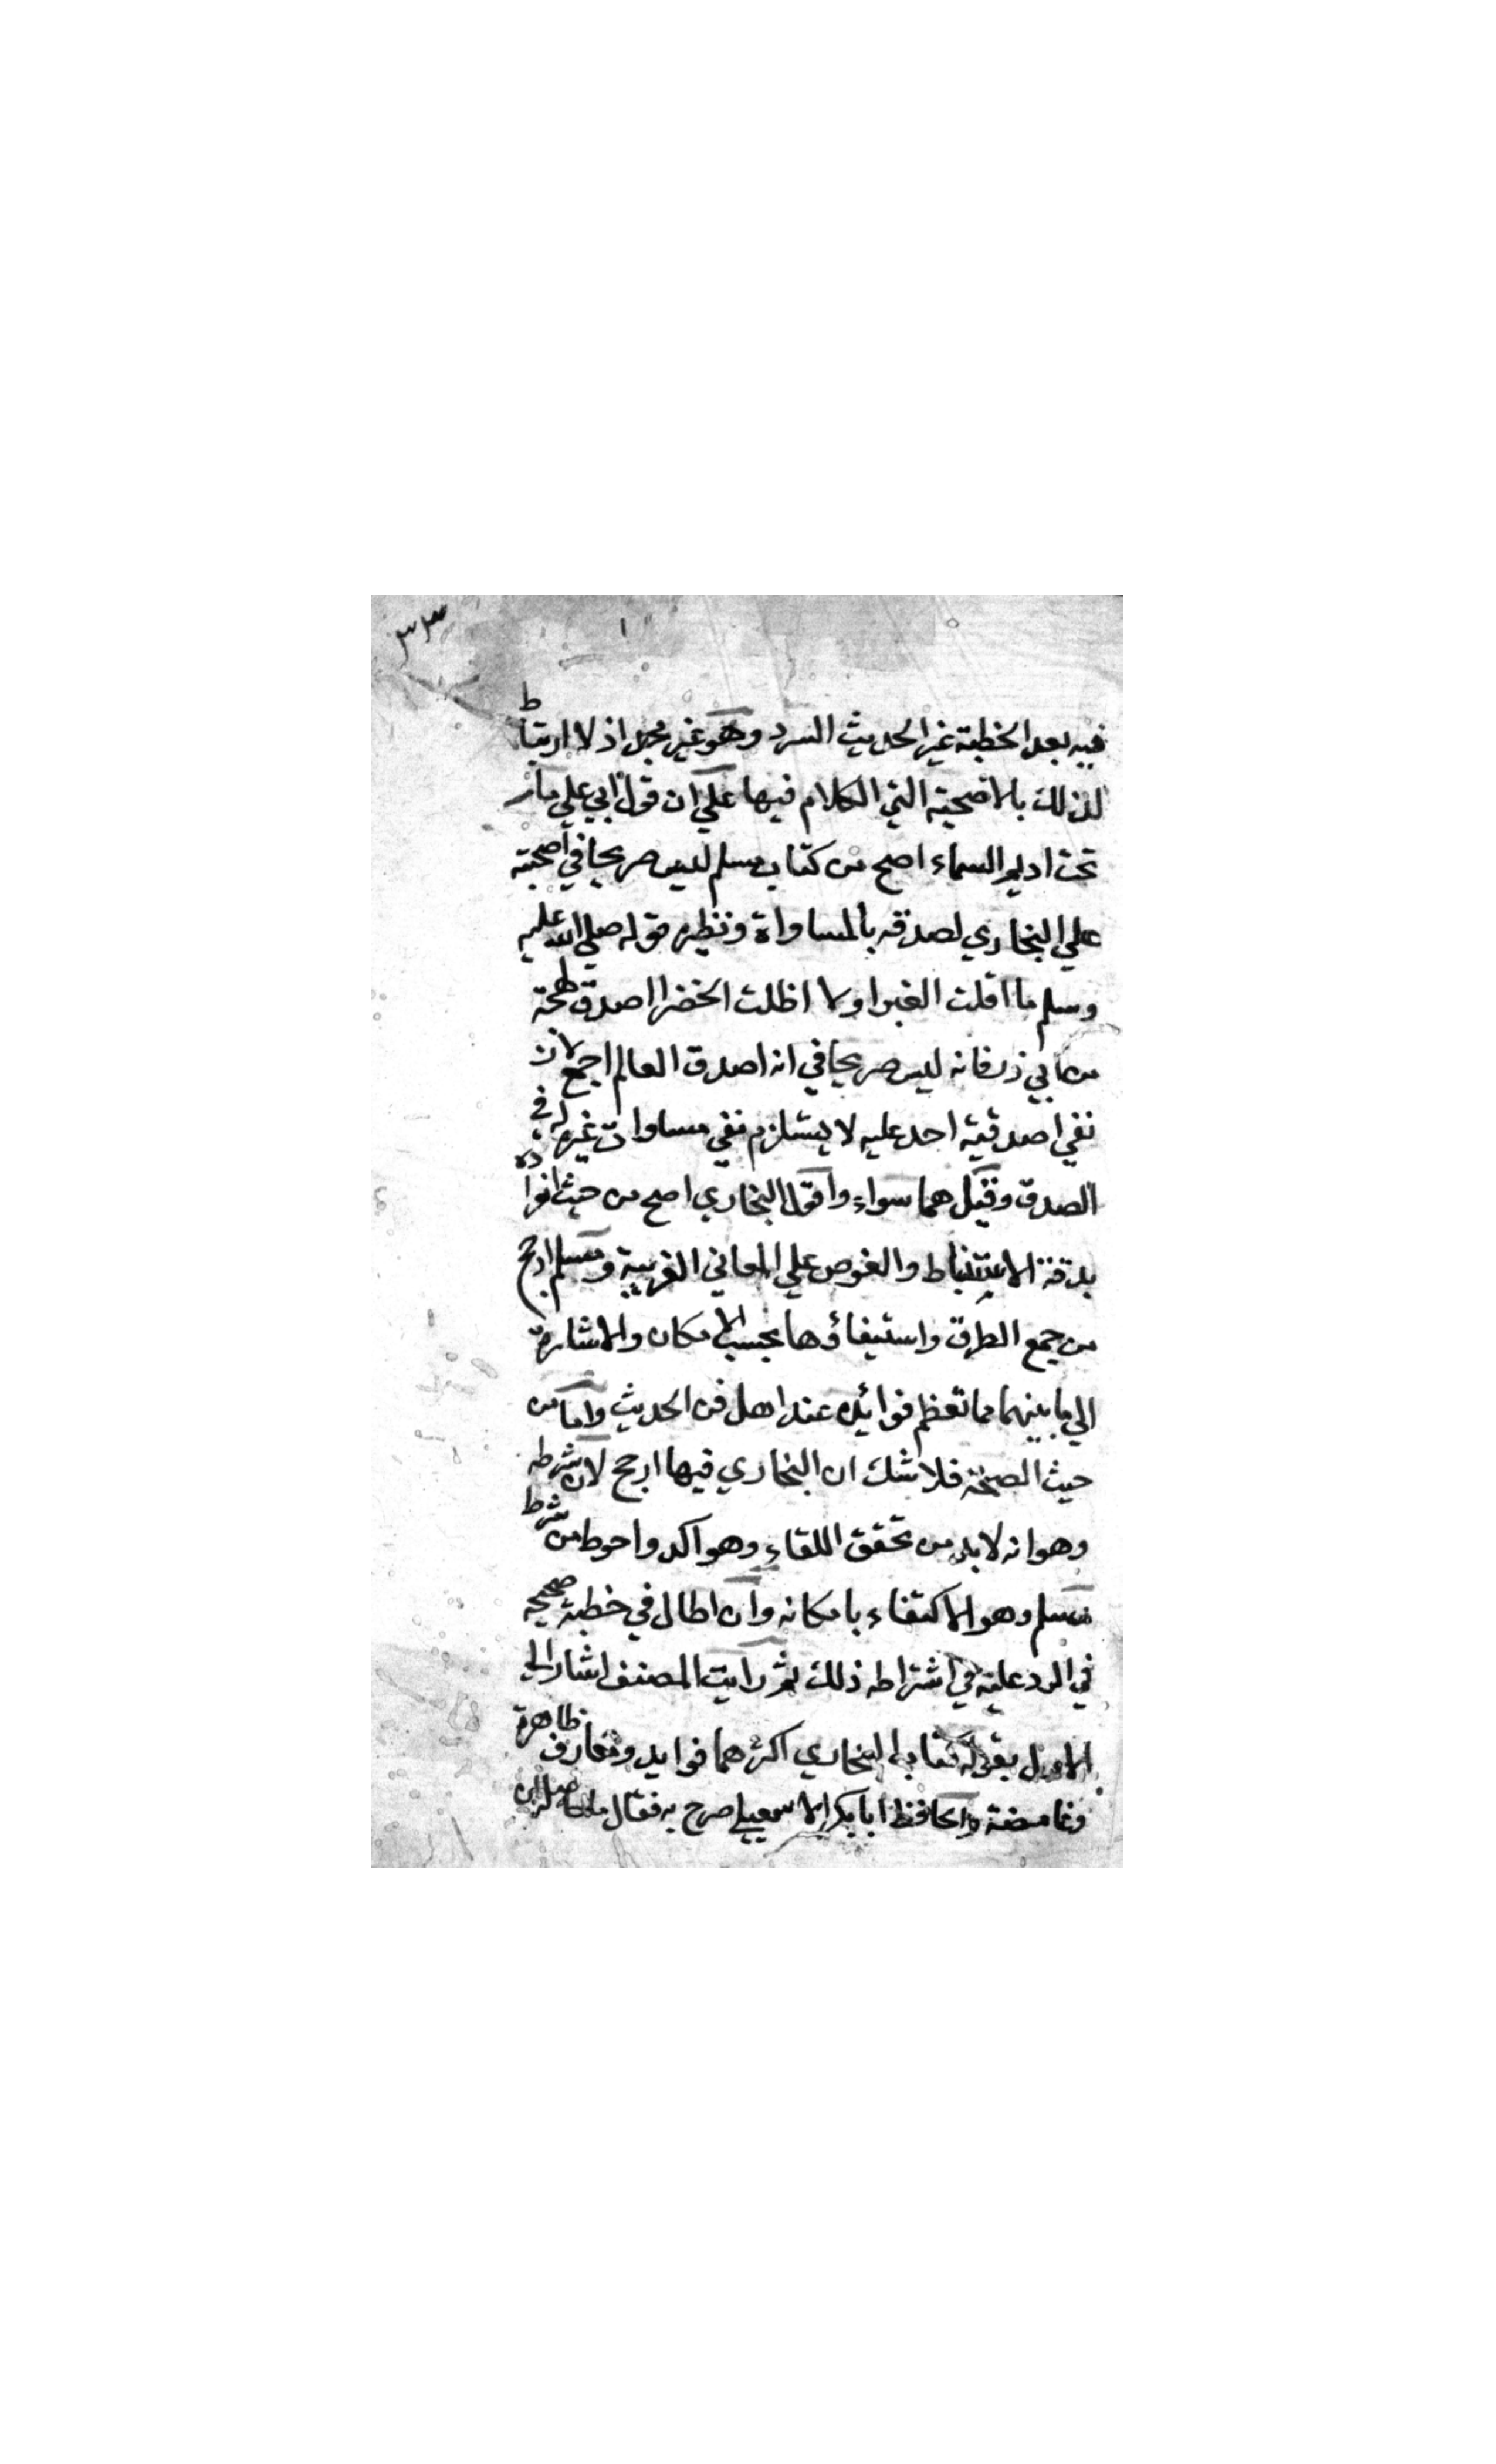 ٣٣
فيه بعد الخطبة غير الحديث السرد وهو غير مجد اذ لا ارتباط
لذلك بالاصحية التي الكلام فيها علي ان قول ابي علي ما
تحت اديم السماء اصح من كتاب مسلم ليس صريحا في اصحيته
علي البخاري لصدقه بالمساواة ونظيره قوله صلي الله عليه
وسلم ما اقلت الغبرا ولا اظلت الخضرا اصدق لهجة
من ابي ذر فانه ليس صريحا في انه اصدق العالم اجمع لان
نفي اصدقية احد عليه لا يستلزم نفي مساوات غيره له في
الصدق وقيل هما سواء واقول البخاري اصح من حيث انفراده
بدقة الاستنباط والغوص علي المعاني الغريبة ومسلم ارجح
من جمع الطرق واستيفاؤها بحسب الامكان والاشارة
الي ما بينهما مما تعظم فوائده عند اهل فن الحديث واما من
حيث الصحة فلا شك ان البخاري فيها ارجح لان شرطه
وهو انه لا بد من تحقق اللقاء وهو آكد واحوط من شرط
مسلم وهو الاكتفاء بامكانه وان اطال في خطبة صحيحه
في الرد عليه في اشتراطه ذلك ثم رايت المصنف اشار الي
الاول بقوله كتاب البخاري اكثرهما فوايد ومعارف ظاهرة
وغامضة والحافظ ابا بكر الاسمعيلي صرح به فقال